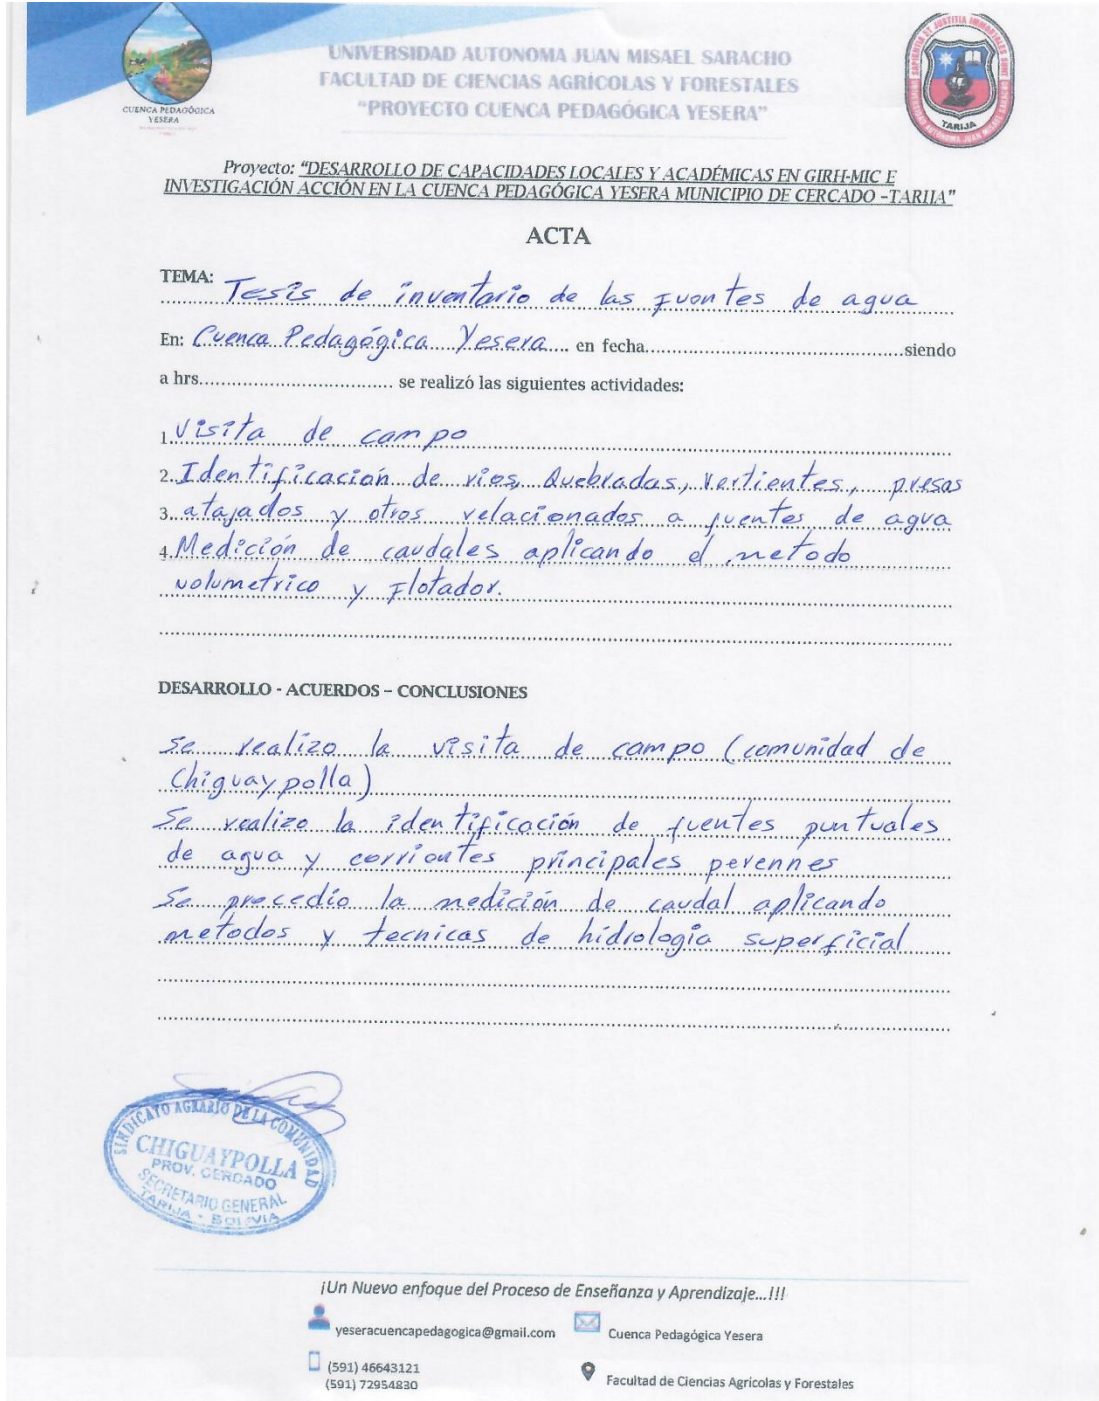 CUENCA PEDAGÓGICA
YESERA
UNIVERSIDAD AUTONOMA JUAN MISAEL SARACHO
FACULTAD DE CIENCIAS AGRÍCOLAS Y FORESTALES
“PROYECTO CUENCA PEDAGÓGICA YESERA”
TARIJA
Proyecto: “DESARROLLO DE CAPACIDADES LOCALES Y ACADÉMICAS EN GIRH-MIC E
INVESTIGACIÓN ACCIÓN EN LA CUENCA PEDAGÓGICA YESERA MUNICIPIO DE CERCADO –TARIJA”
ACTA
TEMA: Tesis de inventario de las fuentes de agua
En: Cuenca Pedagógica Yesera en fecha siendo
a hrs. se realizó las siguientes actividades:
1. Visita de campo
2. Identificación de rios, Quebradas, Vertientes, presas
3. atajados y otros relacionados a fuentes de agua
4. Medición de caudales aplicando el metodo
volumetrico y Flotador.
DESARROLLO - ACUERDOS – CONCLUSIONES
Se realizo la visita de campo (comunidad de
Chiguaypolla)
Se realizo la identificación de fuentes puntuales
de agua y corrientes principales perennes
Se procedio la medición de caudal aplicando
metodos y tecnicas de hidrologia superficial
SINDICATO AGRARIO DE LA COMUNIDAD
CHIGUAYPOLLA
PROV. CERCADO
SECRETARIO GENERAL
TARIJA - BOLIVIA
¡Un Nuevo enfoque del Proceso de Enseñanza y Aprendizaje...!!!
yeseracuencapedagogica@gmail.com
Cuenca Pedagógica Yesera
(591) 46643121
(591) 72954830
Facultad de Ciencias Agrícolas y Forestales